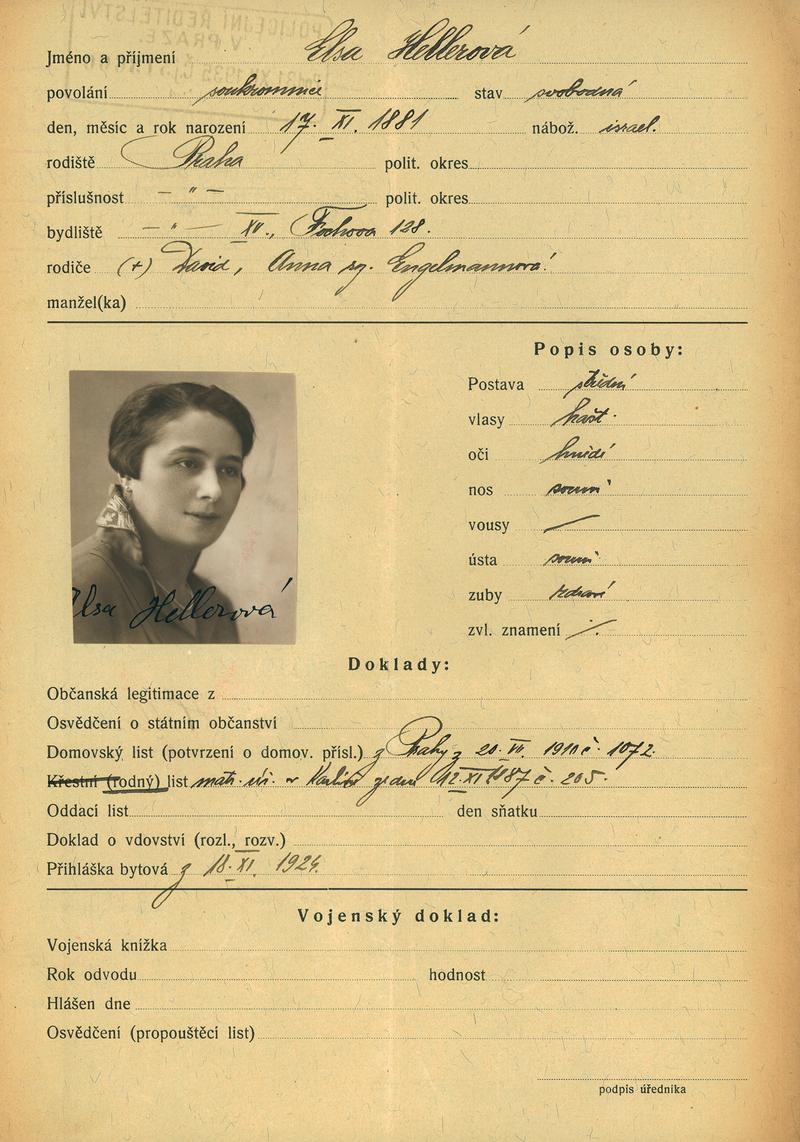 POLICEJNÍ ŘEDITELSTVÍ
V PRAZE
Jméno a příjmení Elsa Hellerová
povolání soukromnice stav svobodná
den, měsíc a rok narození 17. XI. 1881 nábož. israel.
rodiště Praha polit. okres
příslušnost — " — polit. okres
bydliště — " — XII., Fochova 128.
rodiče (+) David, Anna roz. Engelmannová
manžel(ka)
Popis osoby:
Postava střední
vlasy kašt.
oči hnědé
nos soum.
vousy —
ústa soum.
zuby zdravé
zvl. znamení ./.
Elsa Hellerová
Doklady:
Občanská legitimace z
Osvědčení o státním občanství
Domovský list (potvrzení o domov. přísl.) z Prahy z 20. VI. 1910 č. 1072.
Křestní (rodný) list matr. úř. v Karlíně ze dne 12. XI 1887 č. 205.
Oddací list den sňatku
Doklad o vdovství (rozl., rozv.)
Přihláška bytová z 18. XI. 1924.
Vojenský doklad:
Vojenská knížka
Rok odvodu hodnost
Hlášen dne
Osvědčení (propouštěcí list)
podpis úředníka